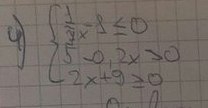 9) { 1/4 x - 8 ≤ 0
5 - 0,2x > 0
2x + 9 ≥ 0